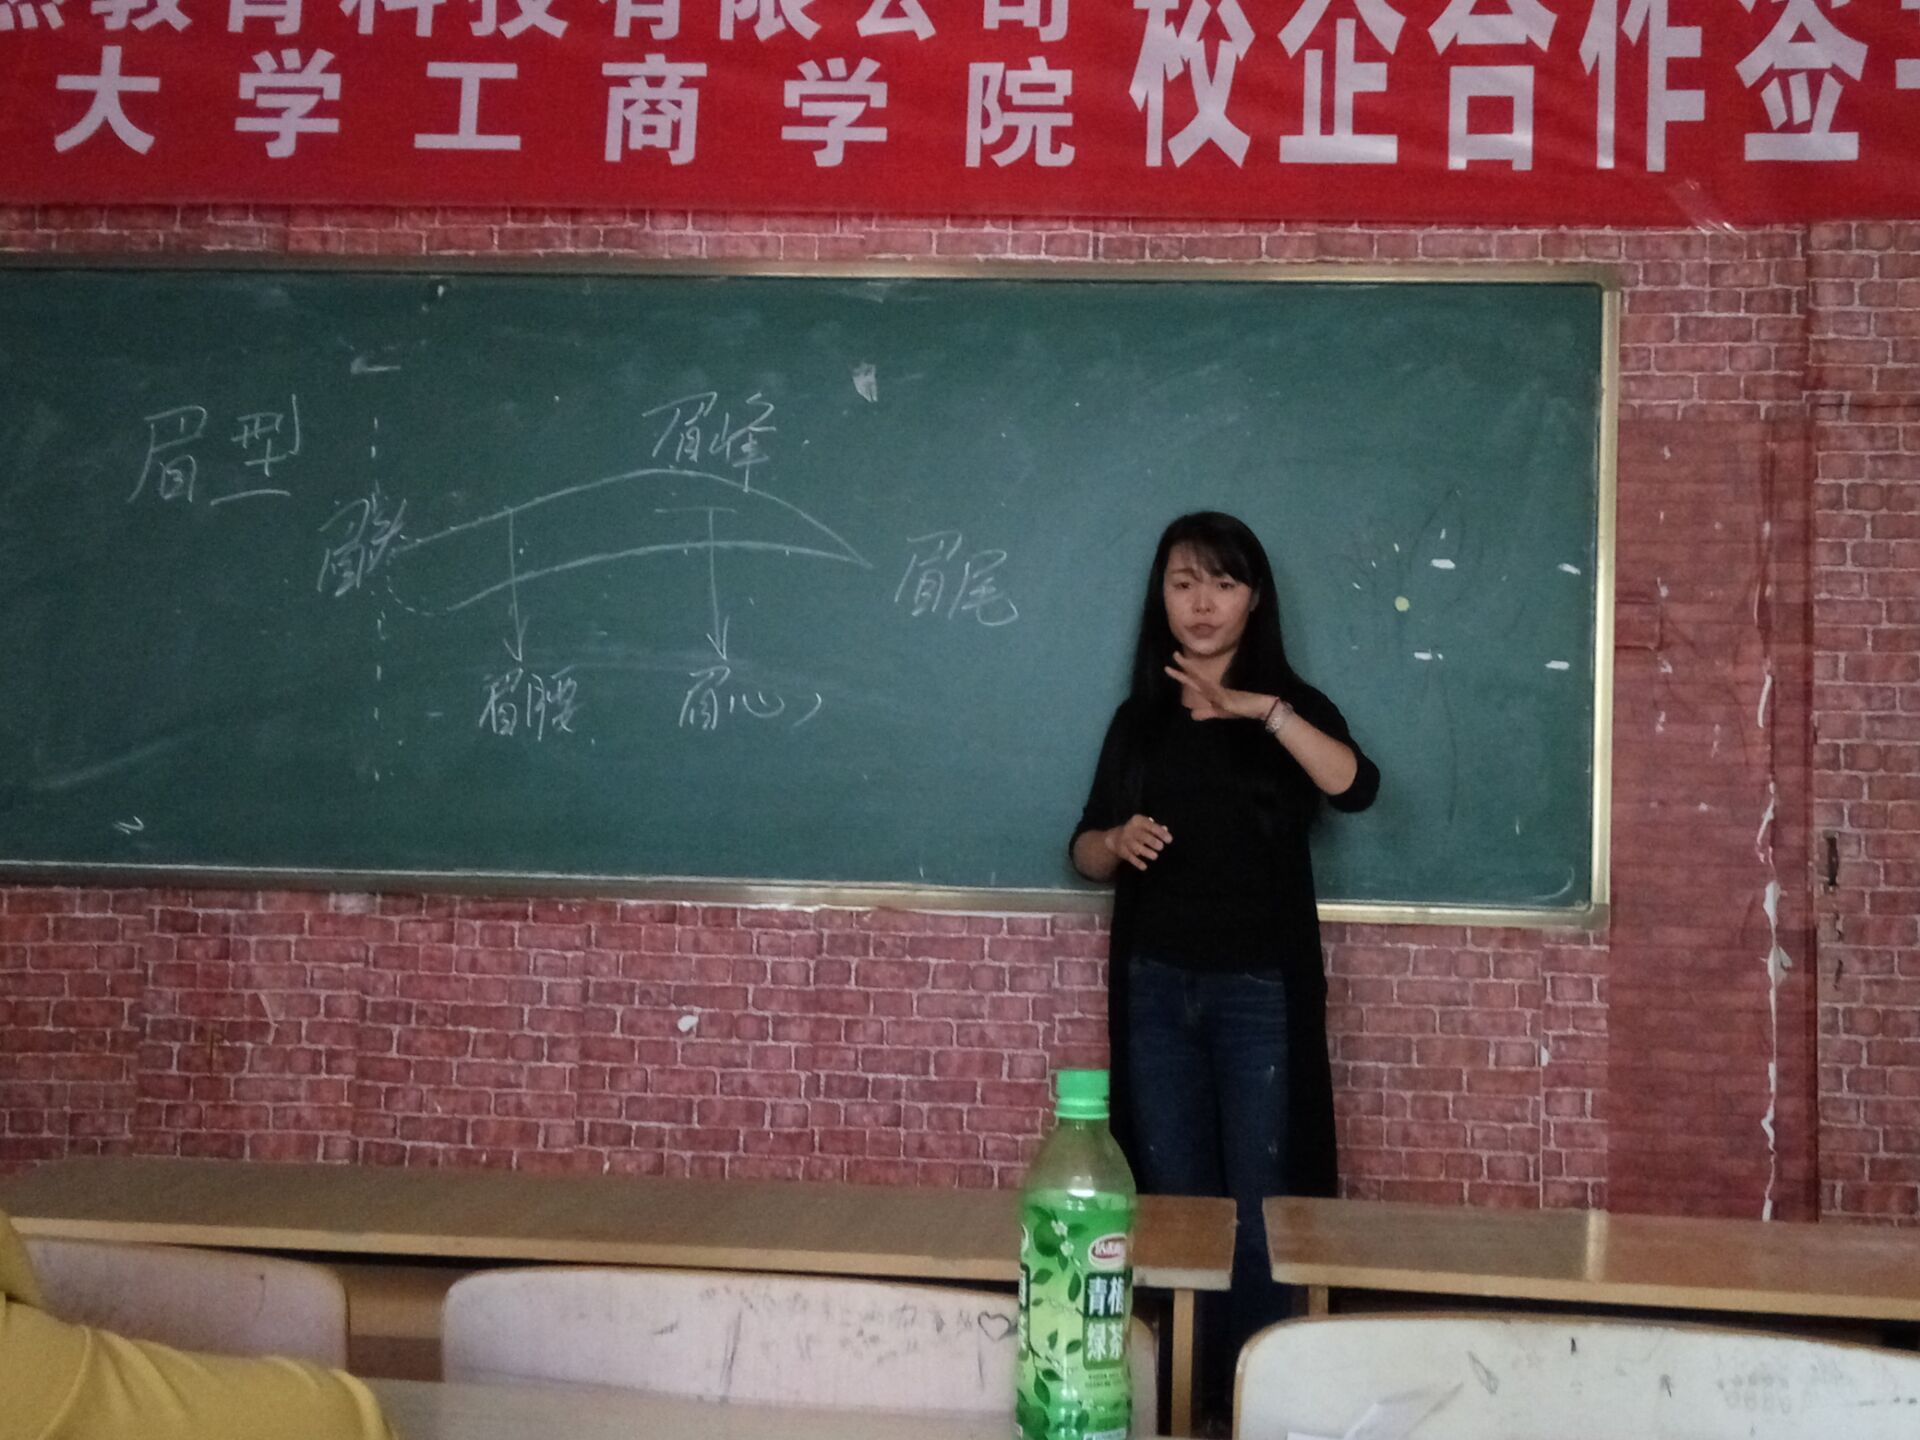 教育科技有限公司
大学工商学院
校企合作签
眉型
眉峰
眉头
眉尾
眉腰
眉心
青梅
绿茶